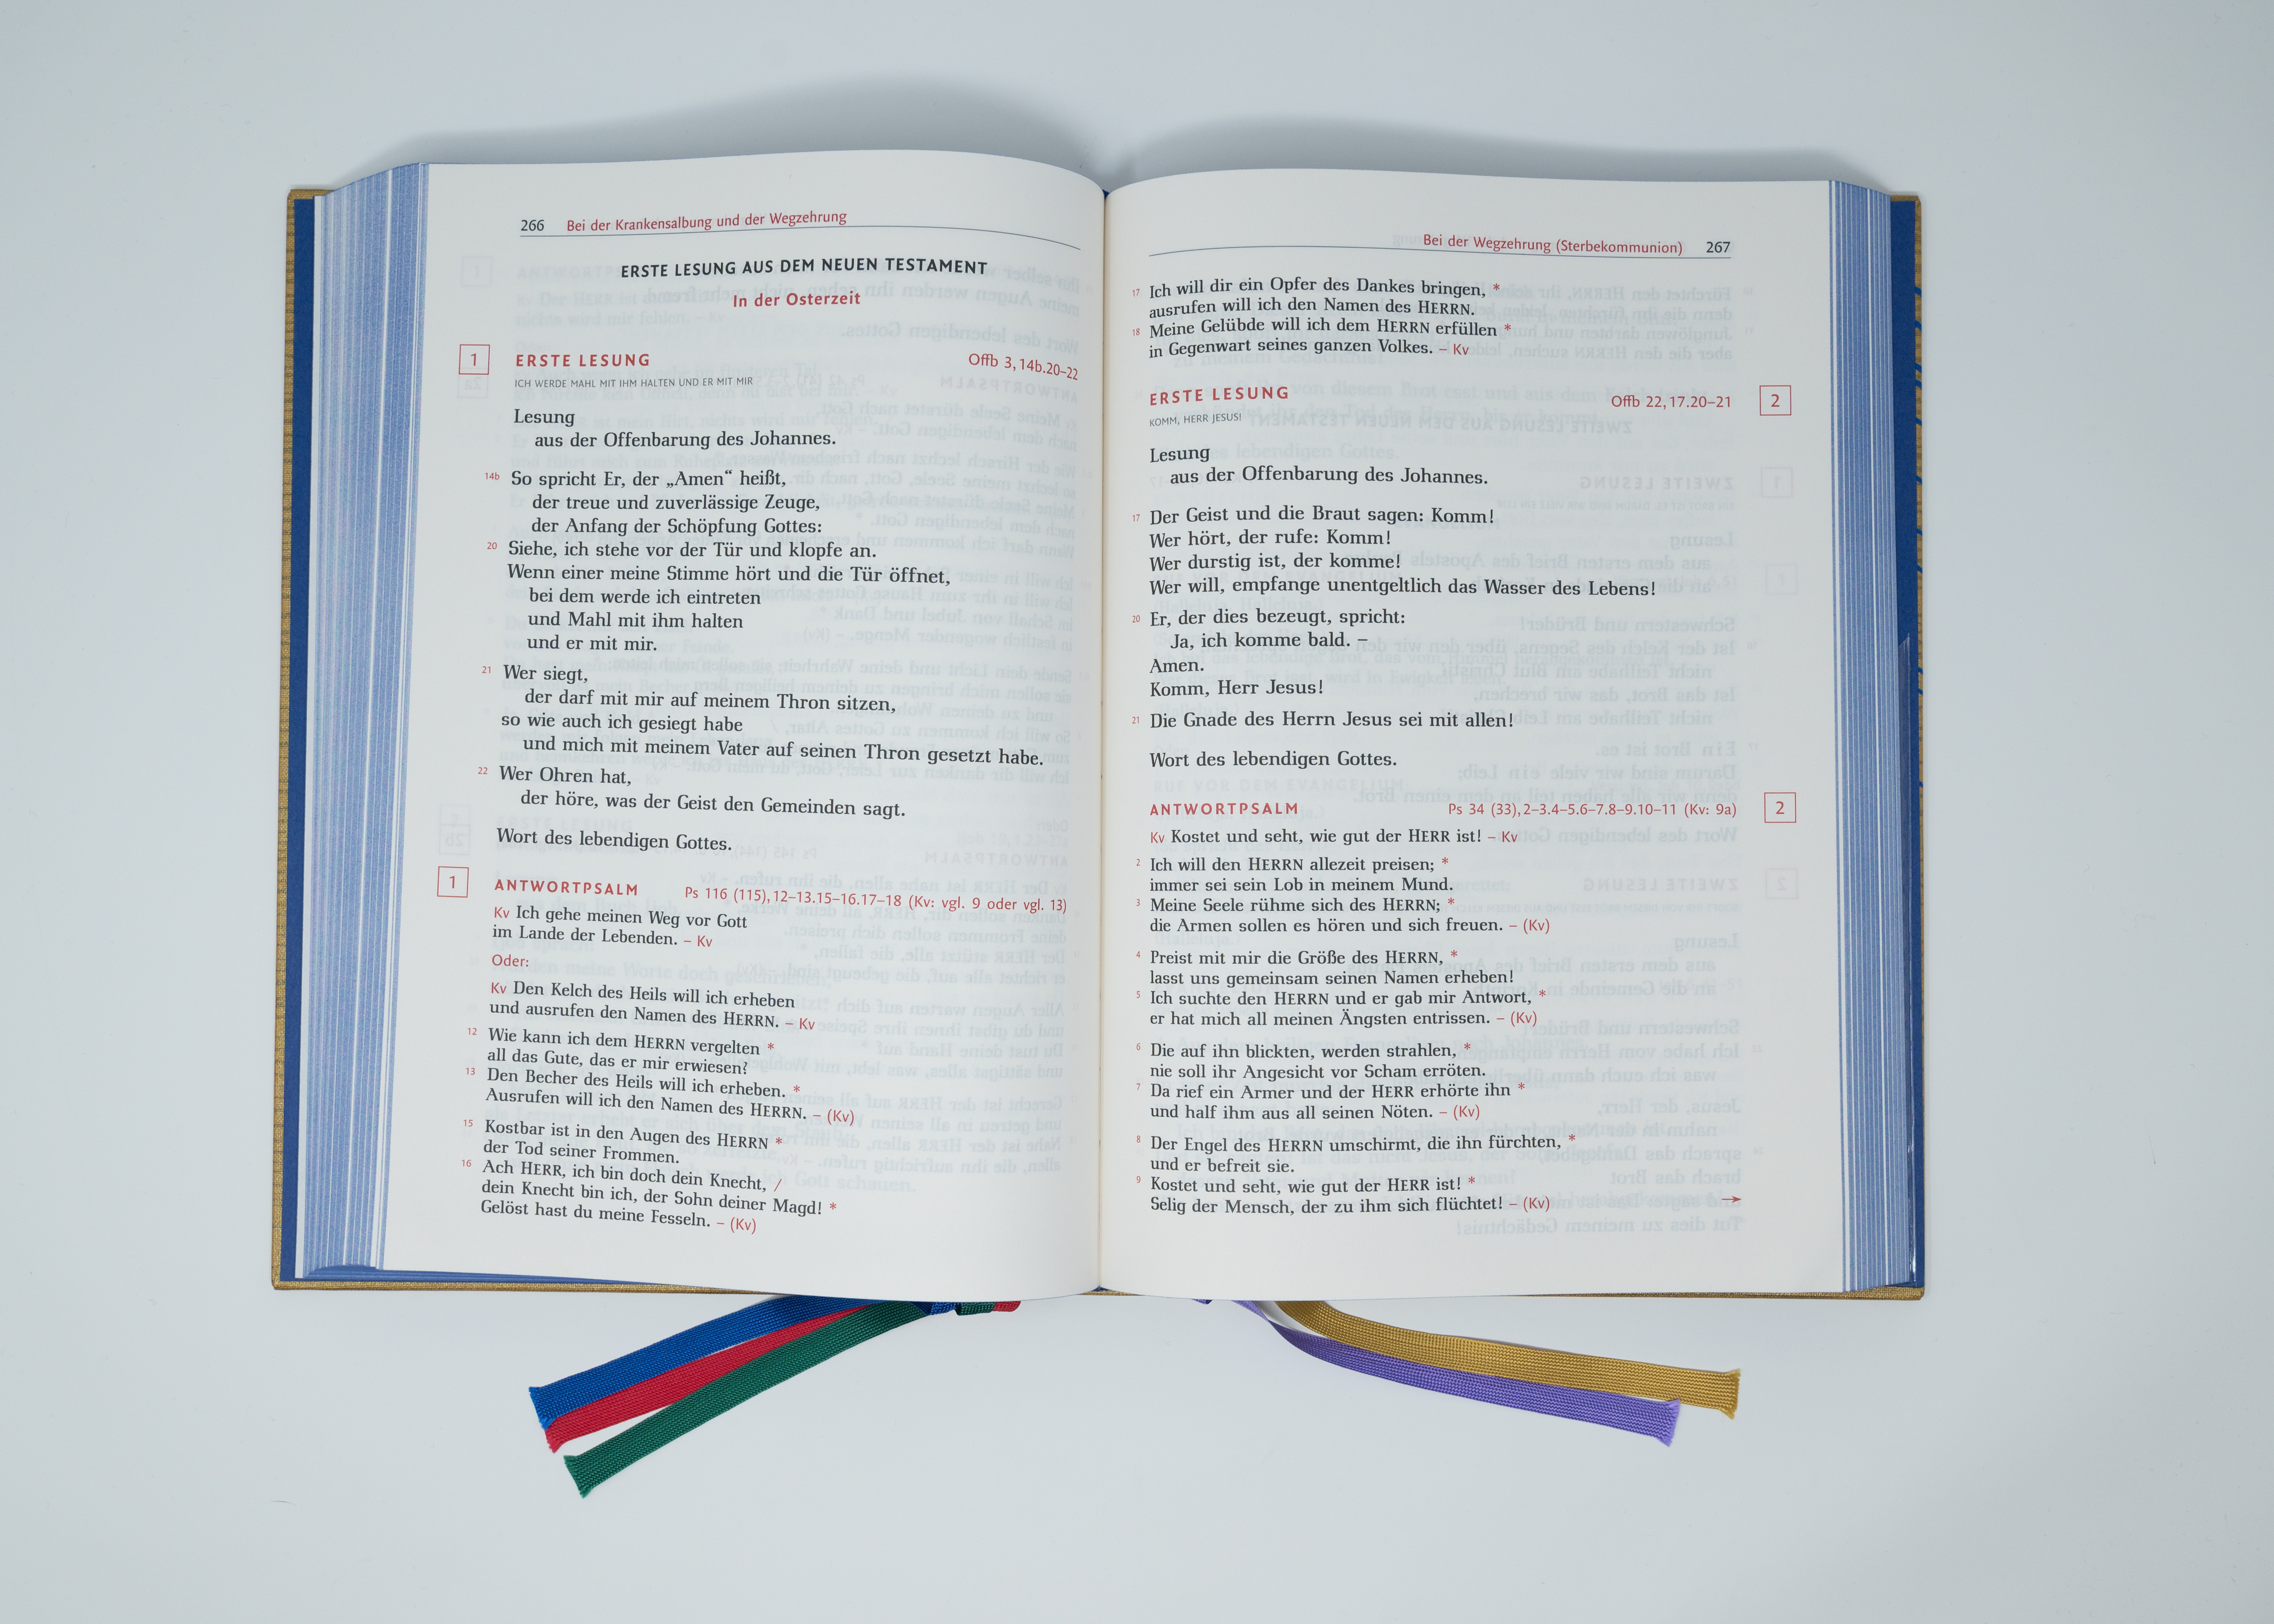 266 Bei der Krankensalbung und der Wegzehrung
ERSTE LESUNG AUS DEM NEUEN TESTAMENT
In der Osterzeit
1 ERSTE LESUNG Offb 3, 14b.20–22
ICH WERDE MAHL MIT IHM HALTEN UND ER MIT MIR
Lesung
aus der Offenbarung des Johannes.
14b So spricht Er, der „Amen“ heißt,
der treue und zuverlässige Zeuge,
der Anfang der Schöpfung Gottes:
20 Siehe, ich stehe vor der Tür und klopfe an.
Wenn einer meine Stimme hört und die Tür öffnet,
bei dem werde ich eintreten
und Mahl mit ihm halten
und er mit mir.
21 Wer siegt,
der darf mit mir auf meinem Thron sitzen,
so wie auch ich gesiegt habe
und mich mit meinem Vater auf seinen Thron gesetzt habe.
22 Wer Ohren hat,
der höre, was der Geist den Gemeinden sagt.
Wort des lebendigen Gottes.
1 ANTWORTPSALM Ps 116 (115), 12–13.15–16.17–18 (Kv: vgl. 9 oder vgl. 13)
Kv Ich gehe meinen Weg vor Gott
im Lande der Lebenden. – Kv
Oder:
Kv Den Kelch des Heils will ich erheben
und ausrufen den Namen des HERRN. – Kv
12 Wie kann ich dem HERRN vergelten *
all das Gute, das er mir erwiesen?
13 Den Becher des Heils will ich erheben. *
Ausrufen will ich den Namen des HERRN. – (Kv)
15 Kostbar ist in den Augen des HERRN *
der Tod seiner Frommen.
16 Ach HERR, ich bin doch dein Knecht, /
dein Knecht bin ich, der Sohn deiner Magd! *
Gelöst hast du meine Fesseln. – (Kv)
Bei der Wegzehrung (Sterbekommunion) 267
17 Ich will dir ein Opfer des Dankes bringen, *
ausrufen will ich den Namen des HERRN.
18 Meine Gelübde will ich dem HERRN erfüllen *
in Gegenwart seines ganzen Volkes. – Kv
ERSTE LESUNG Offb 22, 17.20–21 2
KOMM, HERR JESUS!
Lesung
aus der Offenbarung des Johannes.
17 Der Geist und die Braut sagen: Komm!
Wer hört, der rufe: Komm!
Wer durstig ist, der komme!
Wer will, empfange unentgeltlich das Wasser des Lebens!
20 Er, der dies bezeugt, spricht:
Ja, ich komme bald. –
Amen.
Komm, Herr Jesus!
21 Die Gnade des Herrn Jesus sei mit allen!
Wort des lebendigen Gottes.
ANTWORTPSALM Ps 34 (33), 2–3.4–5.6–7.8–9.10–11 (Kv: 9a) 2
Kv Kostet und seht, wie gut der HERR ist! – Kv
2 Ich will den HERRN allezeit preisen; *
immer sei sein Lob in meinem Mund.
3 Meine Seele rühme sich des HERRN; *
die Armen sollen es hören und sich freuen. – (Kv)
4 Preist mit mir die Größe des HERRN, *
lasst uns gemeinsam seinen Namen erheben!
5 Ich suchte den HERRN und er gab mir Antwort, *
er hat mich all meinen Ängsten entrissen. – (Kv)
6 Die auf ihn blickten, werden strahlen, *
nie soll ihr Angesicht vor Scham erröten.
7 Da rief ein Armer und der HERR erhörte ihn *
und half ihm aus all seinen Nöten. – (Kv)
8 Der Engel des HERRN umschirmt, die ihn fürchten, *
und er befreit sie.
9 Kostet und seht, wie gut der HERR ist! *
Selig der Mensch, der zu ihm sich flüchtet! – (Kv) →